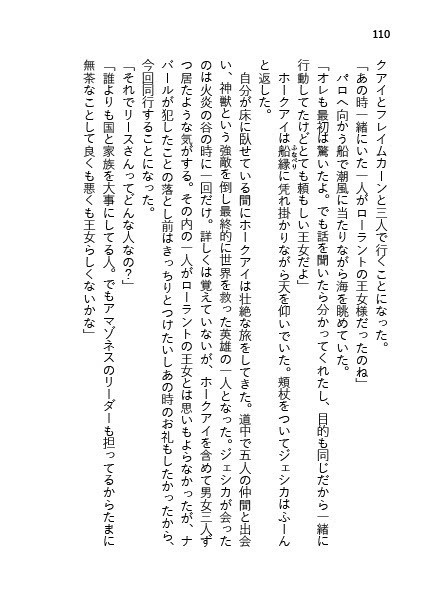 110
クアイとフレイムカーンと三人で行くことになった。
「あの時一緒にいた一人がローラントの王女様だったのね」
パロへ向かう船で潮風に当たりながら海を眺めていた。
「オレも最初は驚いたよ。でも話を聞いたら分かってくれたし、目的も同じだから一緒に
行動してたけどとても頼もしい王女だよ」
ホークアイは船縁に凭れ掛かりながら天を仰いでいた。頬杖をついてジェシカはふーん
ふなべり
と返した。
自分が床に臥せている間にホークアイは壮絶な旅をしてきた。道中で五人の仲間と出会
い、神獣という強敵を倒し最終的に世界を救った英雄の一人となった。ジェシカが会った
のは火炎の谷の時に一回だけ。詳しくは覚えていないが、ホークアイを含めて男女三人ず
つ居たような気がする。その内の一人がローラントの王女とは思いもよらなかったが、ナ
バールが犯したことの落とし前はきっちりとつけたいしあの時のお礼もしたかったから、
今回同行することになった。
「それでリースさんってどんな人なの？」
「誰よりも国と家族を大事にしてる人。でもアマゾネスのリーダーも担ってるからたまに
無茶なことして良くも悪くも王女らしくないかな」